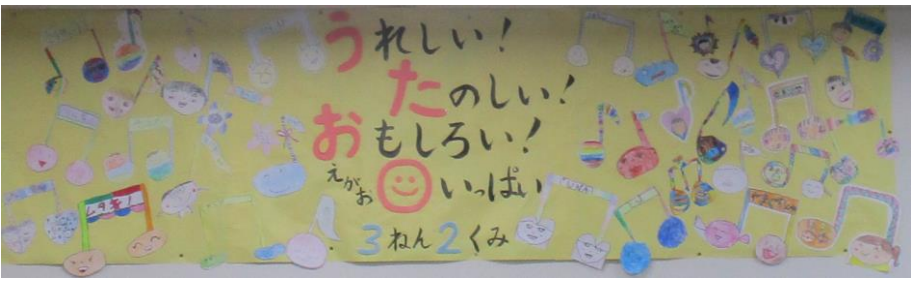 うれしい!
たのしい!
おもしろい!
えがお
いっぱい
3ねん2くみ